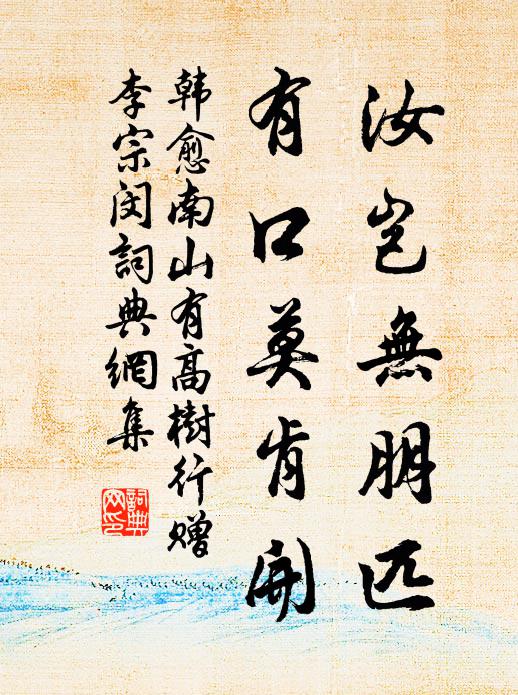 汝岂無朋匹
有口莫肯開
韩愈南山有高樹行赠
李宗闵詞典網集
詞典
网印